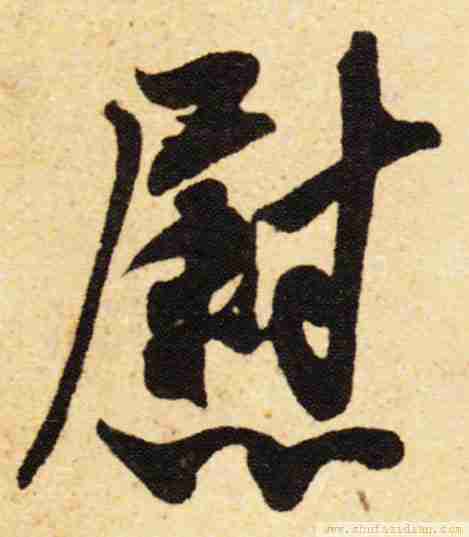 慰
www.shufazidian.com